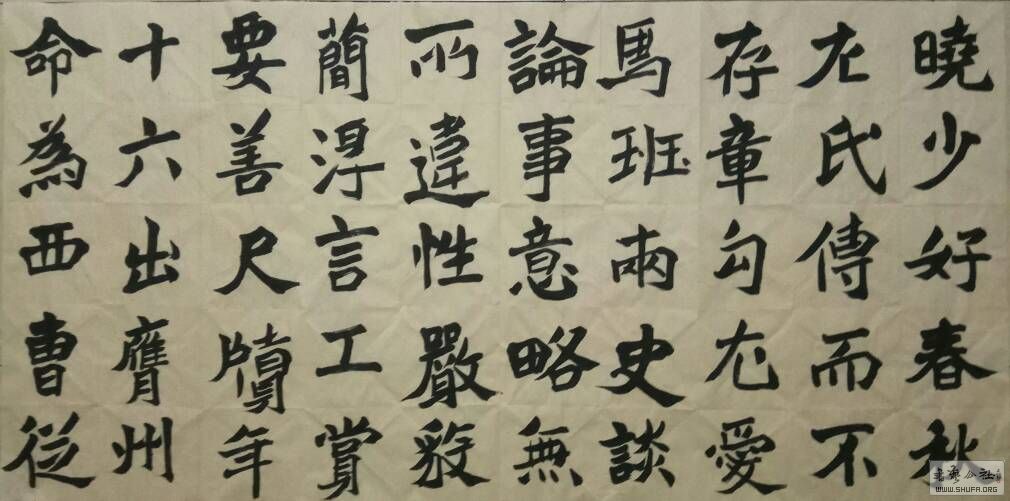 曉少好春秋
左氏傳而不
存章句尤愛
馬班兩史談
論事意略無
所違性嚴毅
簡淂言工賞
要善尺牘年
十六出膺州
命為西曹從
書法公社
WWW.SHUFA.ORG